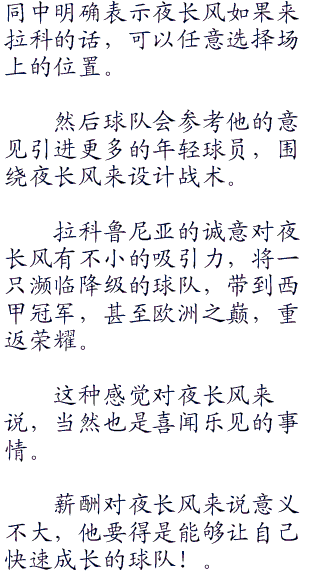 同中明确表示夜长风如果来
拉科的话，可以任意选择场
上的位置。
然后球队会参考他的意
见引进更多的年轻球员，围
绕夜长风来设计战术。
拉科鲁尼亚的诚意对夜
长风有不小的吸引力，将一
只濒临降级的球队，带到西
甲冠军，甚至欧洲之巅，重
返荣耀。
这种感觉对夜长风来
说，当然也是喜闻乐见的事
情。
薪酬对夜长风来说意义
不大，他要得是能够让自己
快速成长的球队！。